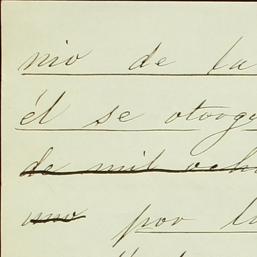 nio de la
él se otorga
de mil ocho
uno por la